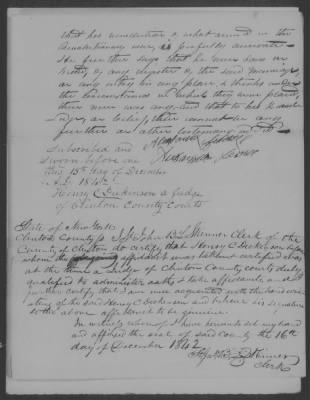 that his recollection of what occurred in the
Revolutionary war, is perfectly accurate.
He further says that he never saw or
of any register of the said marriage
or any entry in any place & thinks under
the circumstances in which they were placed,
there never was any, and that to his knowl
edge, or belief, there cannot be any
further or other testimony
Subscribed and
Sworn before me
this 15th day of December
A.D. 1842
Henry C Dickinson a Judge
of Clinton County Courts
State of New York
Clinton County ss I John B. Skinner Clerk of the
County of Clinton do certify that Henry C Dickinson before
whom the foregoing affidavit was taken & certified was
at the time a Judge of Clinton County courts duly
qualified to administer oaths & take affidavits, and I
further certify that I am well acquainted with the hand writ
ating of the said Henry C Dickinson and believe his signature
to the above affidavit to be genuine.
In witness whereof I have hereunto set my hand
and affixed the seal of said county the 16th
day of December 1842
Skinner
Clerk